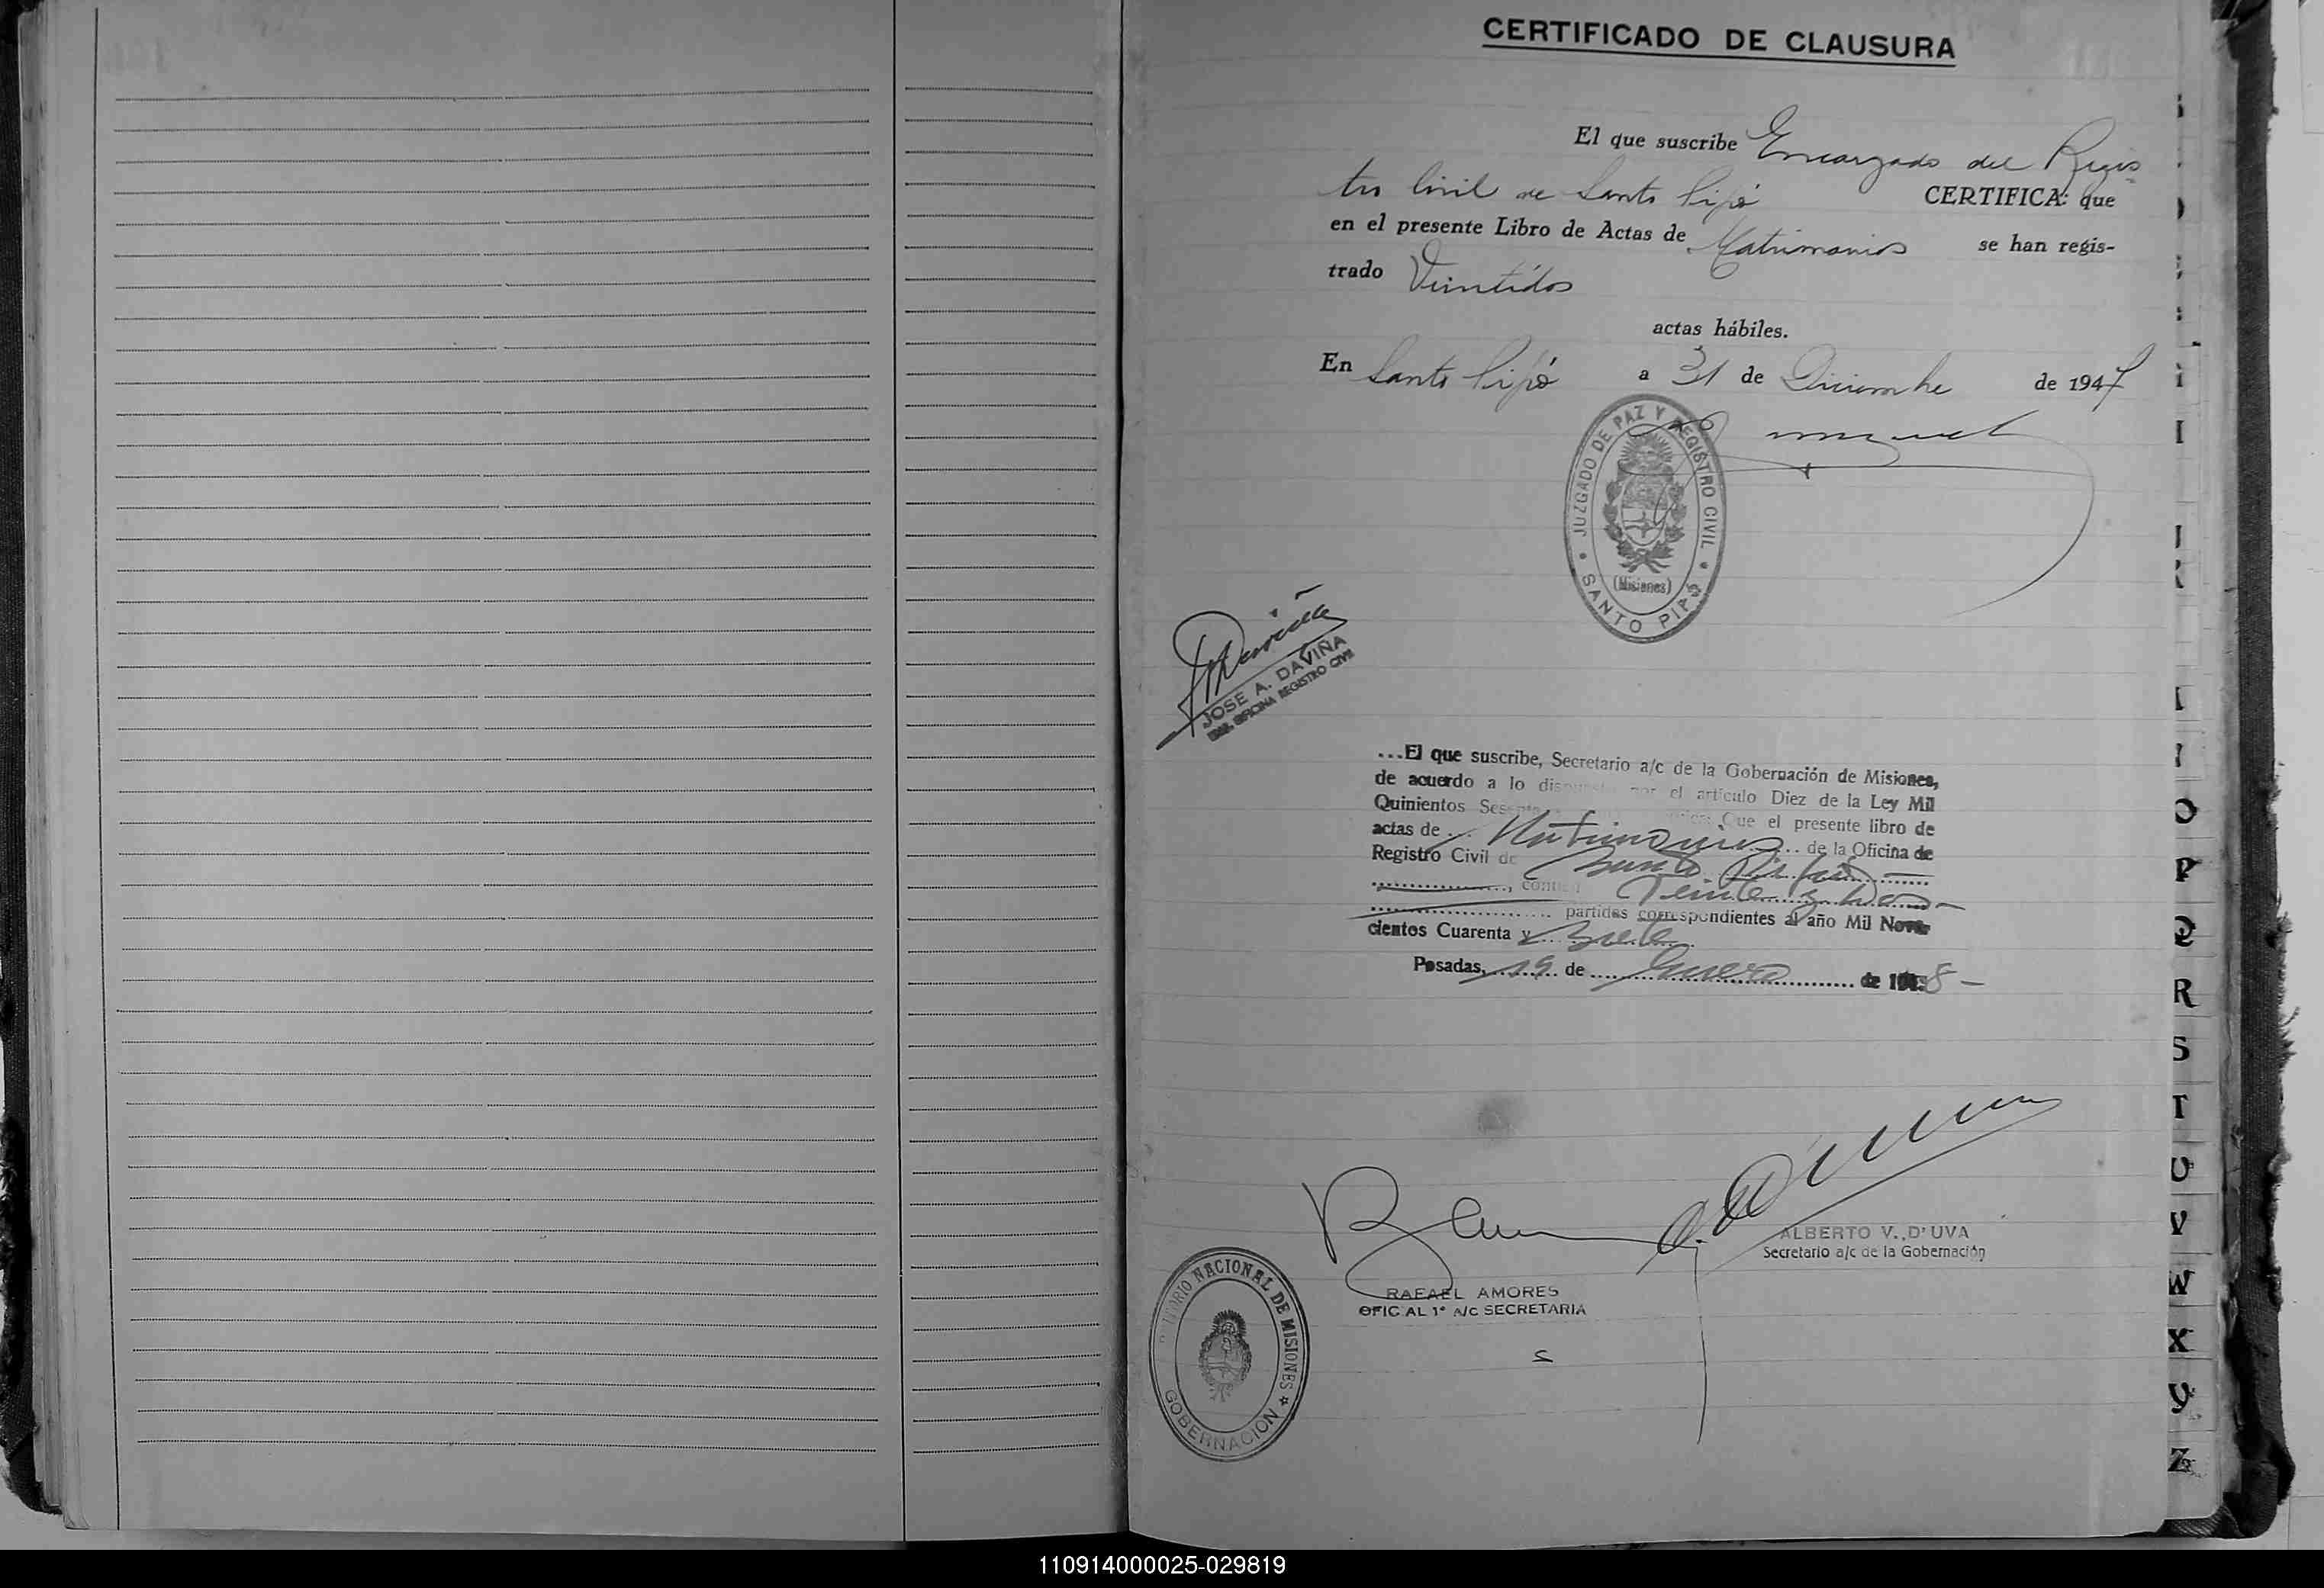 CERTIFICADO DE CLAUSURA
El que suscribe Encargado del Regis
tro Civil de Santo Pipó CERTIFICA: que
en el presente Libro de Actas de Matrimonios se han regis-
trado Veintidos
actas hábiles.
En Santo Pipó a 31 de Diciembre de 1947
JUZGADO DE PAZ Y REGISTRO CIVIL
(Misiones)
SANTO PIPÓ
JOSE A. DAVIÑA
OFICINA REGISTRO CIVIL
...El que suscribe, Secretario a/c de la Gobernación de Misiones,
de acuerdo a lo dispuesto por el artículo Diez de la Ley Mil
Quinientos Sesenta Que el presente libro de
actas de Matrimonios de la Oficina de
Registro Civil de Santo Pipó
Veinte y Dos-
partidas correspondientes al año Mil Nove-
cientos Cuarenta y Siete
Posadas, 19 de Enero de 1948-
ALBERTO V. D'UVA
Secretario a/c de la Gobernación
RAFAEL AMORES
OFICIAL 1° A/C SECRETARIA
TERRITORIO NACIONAL DE MISIONES
GOBERNACION
O
P
Q
R
S
T
U
V
W
X
Y
Z
110914000025-029819